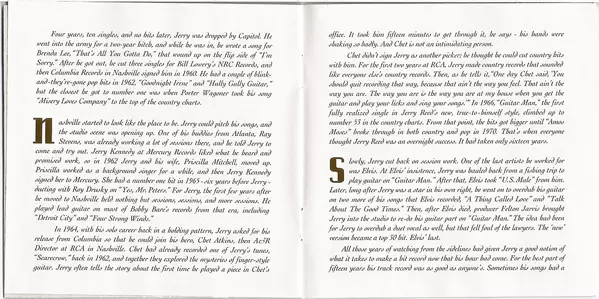 Four years, ten singles, and no hits later, Jerry was dropped by Capitol. He
went into the army for a two-year hitch, and while he was in, he wrote a song for
Brenda Lee, "That's All You Gotta Do," that wound up on the flip side of "I'm
Sorry." After he got out, he cut three singles for Bill Lowery's NRC Records, and
then Columbia Records in Nashville signed him in 1960. He had a couple of blink-
and-they're-gone pop hits in 1962, "Goodnight Irene" and "Hully Gully Guitar,"
but the closest he got to number one was when Porter Wagoner took his song
"Misery Loves Company" to the top of the country charts.
Nashville started to look like the place to be. Jerry could pitch his songs, and
the studio scene was opening up. One of his buddies from Atlanta, Ray
Stevens, was already working a lot of sessions there, and he told Jerry to
come and try out. Jerry Kennedy at Mercury Records liked what he heard and
promised work, so in 1962 Jerry and his wife, Priscilla Mitchell, moved up.
Priscilla worked as a background singer for a while, and then Jerry Kennedy
signed her to Mercury. She had a number one hit in 1965 - six years before Jerry -
duetting with Roy Drusky on "Yes, Mr. Peters." For Jerry, the first few years after
he moved to Nashville held nothing but sessions, sessions, and more sessions. He
played lead guitar on most of Bobby Bare's records from that era, including
"Detroit City" and "Four Strong Winds."
In 1964, with his solo career back in a holding pattern, Jerry asked for his
release from Columbia so that he could join his hero, Chet Atkins, then A&R
Director at RCA in Nashville. Chet had already recorded one of Jerry's tunes,
"Scarecrow," back in 1962, and together they explored the mysteries of finger-style
guitar. Jerry often tells the story about the first time he played a piece in Chet's
office. It took him fifteen minutes to get through it, he says - his hands were
shaking so badly. And Chet is not an intimidating person.
Chet didn't sign Jerry as another picker; he thought he could cut country hits
with him. For the first two years at RCA, Jerry made country records that sounded
like everyone else's country records. Then, as he tells it, "One day Chet said, 'You
should quit recording that way, because that ain't the way you feel. That ain't the
way you are. The way you are is the way you are at my house when you get the
guitar and play your licks and sing your songs.'" In 1966, "Guitar Man," the first
fully realized single in Jerry Reed's new, true-to-himself style, climbed up to
number 53 in the country charts. From that point, the hits got bigger until "Amos
Moses" broke through in both country and pop in 1970. That's when everyone
thought Jerry Reed was an overnight success. It had taken only sixteen years.
Slowly, Jerry cut back on session work. One of the last artists he worked for
was Elvis. At Elvis' insistence, Jerry was hauled back from a fishing trip to
play guitar on "Guitar Man." After that, Elvis took "U.S. Male" from him.
Later, long after Jerry was a star in his own right, he went on to overdub his guitar
on two more of his songs that Elvis recorded, "A Thing Called Love" and "Talk
About The Good Times." Then, after Elvis died, producer Felton Jarvis brought
Jerry into the studio to re-do his guitar part on "Guitar Man." The idea had been
for Jerry to overdub a duet vocal as well, but that fell foul of the lawyers. The 'new'
version became a top 30 hit. Elvis' last.
All those years of watching from the sidelines had given Jerry a good notion of
what it takes to make a hit record now that his hour had come. For the best part of
fifteen years his track record was as good as anyone's. Sometimes his songs had a